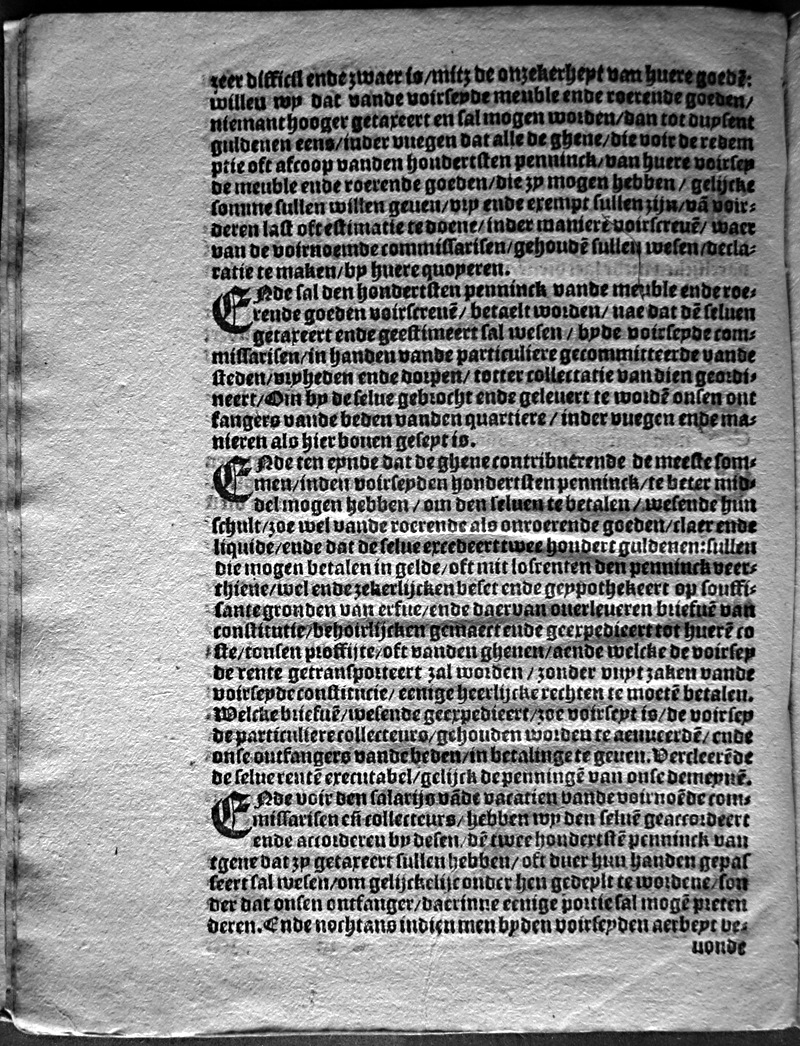 zeer difficil ende zwaer is/mitz de onzekerheyt van huere goedẽ:
willen wy dat vande voirseyde meuble ende roerende goeden/
niemant hooger getaxeert en sal mogen worden/dan tot duysent
guldenen eens/inder vuegen dat alle de ghene/die voir de redem
ptie oft afcoop vanden hondertsten penninck/van huere voirsey
de meuble ende roerende goeden/die zy mogen hebben/ gelijcke
somme sullen willen geuen/vry ende exempt sullen zijn/vã voir-
deren last oft estimatie te doene/inder manierẽ voirscreuẽ/ waer
van de voirnoemde commissarisen/gehoudẽ sullen wesen/decla-
ratie te maken/by huere quoyeren.
ENde sal den hondertsten penninck vande meuble ende roe-
rende goeden voirscreuẽ/ betaelt worden/ nae dat dẽ seluen
getaxeert ende geestimeert sal wesen / byde voirseyde com-
missarisen/in handen vande particuliere gecommitteerde vande
steden/vryheden ende dorpen/ totter collectatie van dien geordi-
neert/Om by de selue gebrocht ende geleuert te wordẽ onsen ont
fangers vande beden vanden quartiere / inder vuegen ende ma-
nieren als hier bouen geseyt is.
ENde ten eynde dat de ghene contribuerende de meeste som-
men/inden voirseyden hondertsten penninck/te beter mid-
del mogen hebben / om den seluen te betalen / wesende hun
schult/zoe wel vande roerende als onroerende goeden/claer ende
liquide/ende dat de selue excedeert twee hondert guldenen:sullen
die mogen betalen in gelde/oft mit losrenten den penninck veer-
thiene/wel ende zekerlijcken beset ende geypothekeert op souffi-
sante gronden van erfue/ende daer van ouerleueren briefuẽ van
constitutie/behoirlijcken gemaect ende geexpedieert tot huerẽ co
ste/tonsen proffijte/oft vanden ghenen/aende welcke de voirsey
de rente getransporteert zal worden / zonder vuyt zaken vande
voirseyde constitucie/ eenige heerlijcke rechten te moetẽ betalen.
Welcke briefuẽ/wesende geexpedieert/zoe voirseyt is/de voirsey
de particuliere collecteurs/gehouden worden te aenueerdẽ/ ende
onse ontfangers vande beden/in betalinge te geuen. Vercleerẽde
de selue rentẽ executabel/gelijck de penningẽ van onse demeynẽ.
ENde voir den salarijs vãde vacatien vande voirnoẽde com-
missarisen eñ collecteurs/ hebben wy den seluẽ geaccordeert
ende accorderen by desen/dẽ twee hondertstẽ penninck van
tgene dat zy getaxeert sullen hebben/ oft duer hun handen gepas
seert sal wesen/om gelijckelijc onder hen gedeylt te wordene/son
der dat onsen ontfanger/daerinne eenige portie sal mogẽ preten
deren. Ende nochtans indien men byden voirseyden aerbeyt be-
uonde